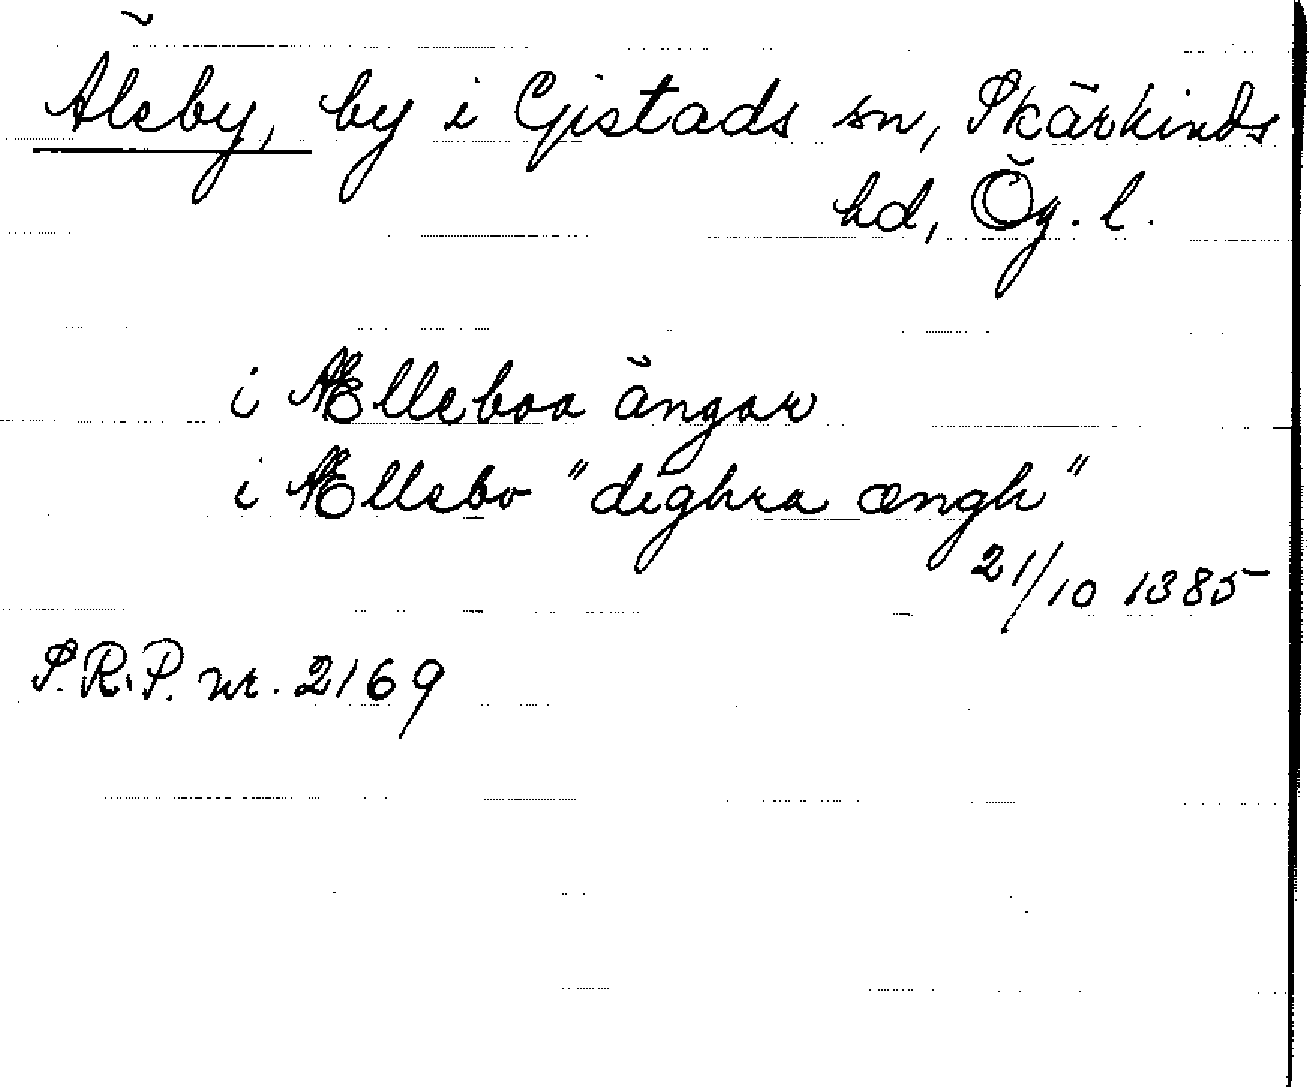 Älsby, by i Gistads sn, Skärkinds
hd, Ög. l.
i Ællsboa ängar
i Ællsbo "dighra ængh"
21/10 1385
S.R.P. nr. 2169